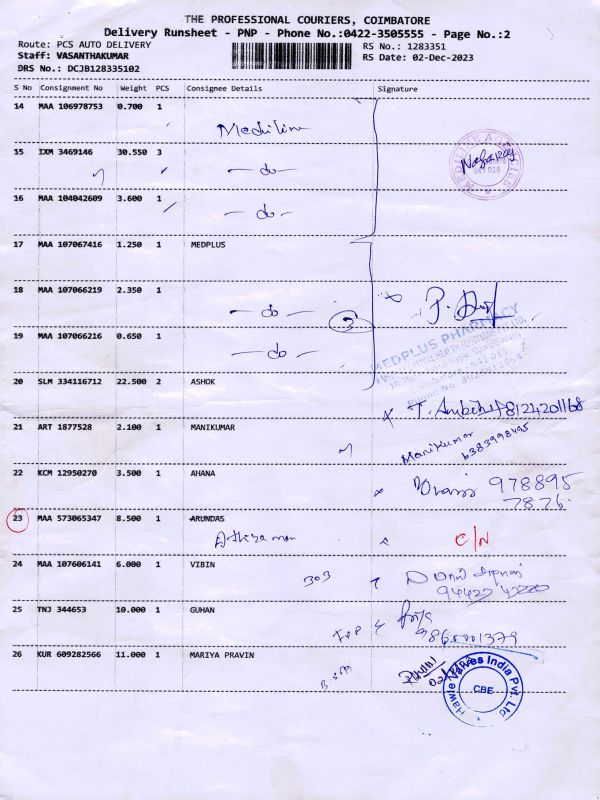 THE PROFESSIONAL COURIERS, COIMBATORE
Delivery Runsheet - PNP - Phone No.:0422-3505555 - Page No.:2
Route: PCS AUTO DELIVERY
RS No.: 1283351
Staff: VASANTHAKUMAR
RS Date: 02-Dec-2023
DRS No.: DCJB128335102
S No Consignment No Weight PCS Consignee Details Signature
14 MAA 106978753 0.700 1
15 IXM 3469146 30.550 3
- do -
16 MAA 104042609 3.600 1
- do -
17 MAA 107067416 1.250 1 MEDPLUS
18 MAA 107066219 2.350 1
- do -
3
19 MAA 107066216 0.650 1
- do -
MEDPLUS PHARMACY
20 SLM 334116712 22.500 2 ASHOK
8124201168
21 ART 1877528 2.100 1 MANIKUMAR
Manikumar
6383998495
22 KCM 12950270 3.500 1 AHANA
978895
7876
23 MAA 573065347 8.500 1 ARUNDAS
C/N
24 MAA 107606141 6.000 1 VIBIN
303
25 TNJ 344653 10.000 1 GUHAN
26 KUR 609282566 11.000 1 MARIYA PRAVIN
Hawle Valves India Pvt. Ltd
CBE